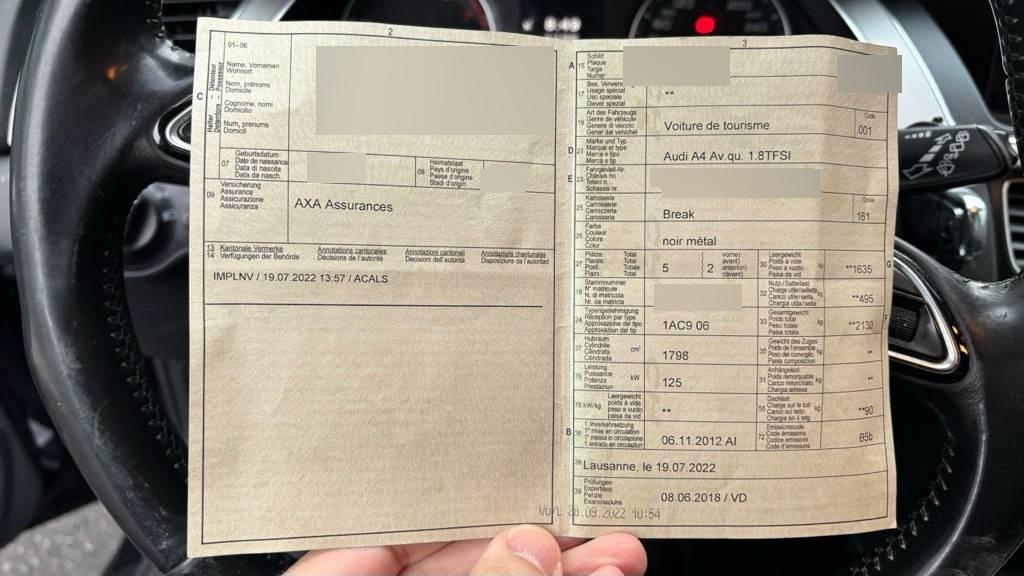 2
01–06
Name, Vornamen
Wohnort
Nom, prénoms
Domicile
Cognome, nomi
Domicilio
Num, prenums
Domicil
C
Halter – Détenteur
Detentore – Possessur
07
Geburtsdatum
Date de naissance
Data di nascita
Data da nasch.
08
Heimatstaat
Pays d'origine
Paese d'origine
Stadi d'origin
09
Versicherung
Assurance
Assicurazione
Assicuranza
AXA Assurances
13 Kantonale Vermerke Annotations cantonales Annotazioni cantonali Annotaziuns chantunalas
14 Verfügungen der Behörde Décisions de l'autorité Decisioni dell'autorità Disposiziuns da l'autoritad
IMPLNV / 19.07.2022 13:57 / ACALS
3
A 15
Schild
Plaque
Targa
Numer
17
Bes. Verwend
Usage spécial
Uso speciale
Diever spezial
**
19
Art des Fahrzeugs
Genre de véhicule
Genere di veicolo
Gener dal vehichel
Voiture de tourisme
Code
001
D 21
Marke und Typ
Marque et type
Marca e tipo
Marca e tip
Audi A4 Av.qu. 1.8TFSI
E 23
Fahrgestell-Nr.
Châssis no
Telaio n.
Schassis nr.
25
Karosserie
Carrosserie
Carrozzeria
Carossaria
Break
Code
161
26
Farbe
Couleur
Colore
Colur
noir métal
27
Plätze: Total
Places: Total
Posti: Totale
Plazs: Total
5
2
vorne)
avant)
anteriori)
davant)
30
Leergewicht
Poids à vide
Peso a vuoto
Paisa da vid
kg
**1635
G
18
Stammnummer
N° matricule
N. di matricola
Nr. da matricla
32
Nutz-/Sattellast
Charge utile/sellette
Carico utile/sella
Chargia utila/sella
kg
**495
24
Typengenehmigung
Réception par type
Approvazione del tipo
Approvaziun dal tip
1AC9 06
33
Gesamtgewicht
Poids total
Peso totale
Paisa totala
kg
**2130
F
37
Hubraum
Cylindrée
Cilindrata
Cilindrada
cm³
1798
35
Gewicht des Zuges
Poids de l'ensemble
Peso del convoglio
Paisa cumposiziun
kg
**
76
Leistung
Puissance
Potenza
Prestaziun
kW
125
31
Anhängelast
Poids remorquable
Carico rimorchiato
Chargia annexa
kg
**
78 kW/kg
Leergewicht
poids à vide
peso a vuoto
paisa da vid
**
55
Dachlast
Charge sur le toit
Carico sul tetto
Chargia sin il tetg
kg
**90
B 36
1. Inverkehrsetzung
1re mise en circulation
1a messa in circolazione
1. entrada en circulaziun
06.11.2012 AI
72
Emissionscode
Code émissions
Codice emissioni
Code d'emissiuns
B5b
38
Lausanne, le 19.07.2022
39
Prüfungen
Expertises
Perizie
Examinaziuns
08.06.2018 / VD
28.09.2022 10:54